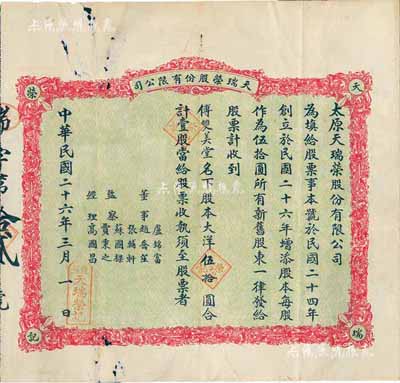 天瑞榮股份有限公司
天
榮
瑞
記
太原天瑞榮股份有限公司
為填給股票事本號於民國二十四年
創立於民國二十六年增添股本每股
作為伍拾圓所有新舊股東一律發給
股票計收到
傅雙美堂名下股本大洋伍拾圓合
計壹股當給股票收執須至股票者
董事 盧錦富
趙喬笙
張輔軒
監察 蘇國樑
賈秉之
經理 高國昌
中華民國二十六年三月一日
字第拾貳號